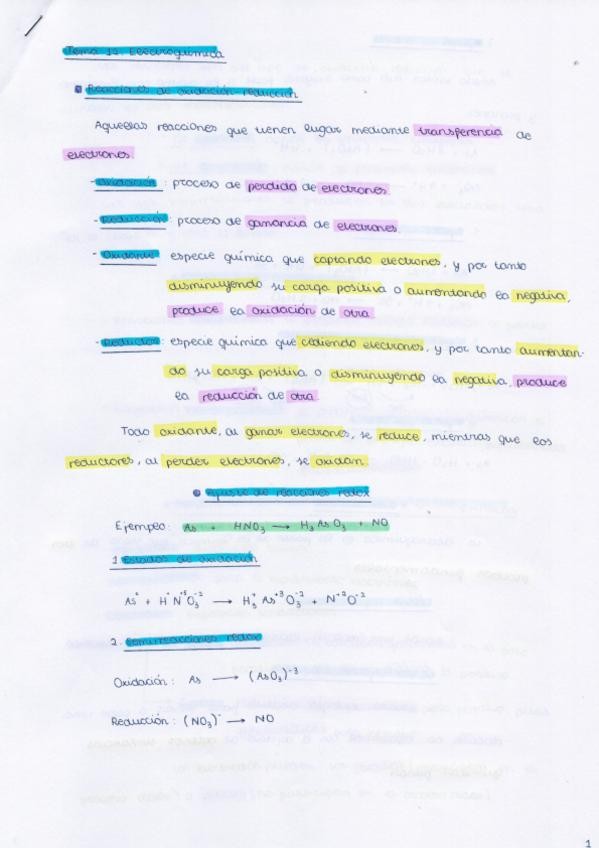 Tema 12: Electroquímica
Reacciones de oxidación-reducción
Aquellas reacciones que tienen lugar mediante transferencia de
electrones.
- Oxidación: proceso de perdida de electrones.
- Reducción: proceso de ganancia de electrones.
- Oxidante: especie química que captando electrones, y por tanto
disminuyendo su carga positiva o aumentando la negativa,
produce la oxidación de otra.
- Reductor: especie química que cediendo electrones, y por tanto aumentan-
do su carga positiva o disminuyendo la negativa, produce
la reducción de otra.
Todo oxidante, al ganar electrones, se reduce, mientras que los
reductores, al perder electrones, se oxidan.
Ajuste de reacciones redox
Ejemplo: As + HNO₃ → H₃AsO₃ + NO
1. Estados de oxidación
As⁰ + H⁺N⁺⁵O₃⁻² → H₃⁺As⁺³O₃⁻² + N⁺²O⁻²
2. Semirreacciones redox
Oxidación: As → (AsO₃)⁻³
Reducción: (NO₃)⁻ → NO
1